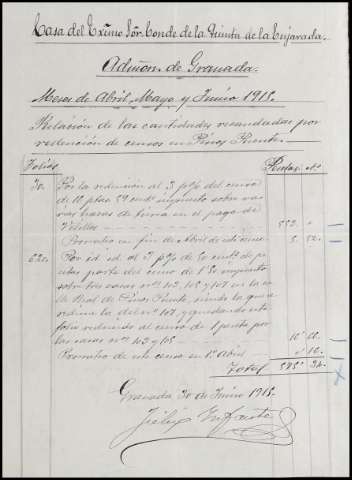 Casa del Exmo Sor. Conde de la Quinta de la Enjarada.
Admon. de Granada.
Meses de Abril, Mayo y Junio 1915.
Relación de las cantidades recaudadas por
redención de censos en Pinos Puente.
Folios Pesetas Cs.
30. Por la redención al 3 p% del censo
de 16 ptas 59 cents impuesto sobre
varias hazas de tierra en el pago de
552
Prorrateo en fin de Abril de este censo 5. 52.
620. Por id id al 3 p% de 50 cents de
pesetas parte del censo de 1'50 impuesto
sobre tres casas nos 103, 105 y 107 en la
calle Real de Pinos Puente, siendo la que se
redime la del no 107 y quedando este
folio reducido al censo de 1 peseta por
las casas nos 103 y 105
Prorrateo de este censo en 1o Abril
Total
Granada 30 de Junio 1915.
Félix Infante